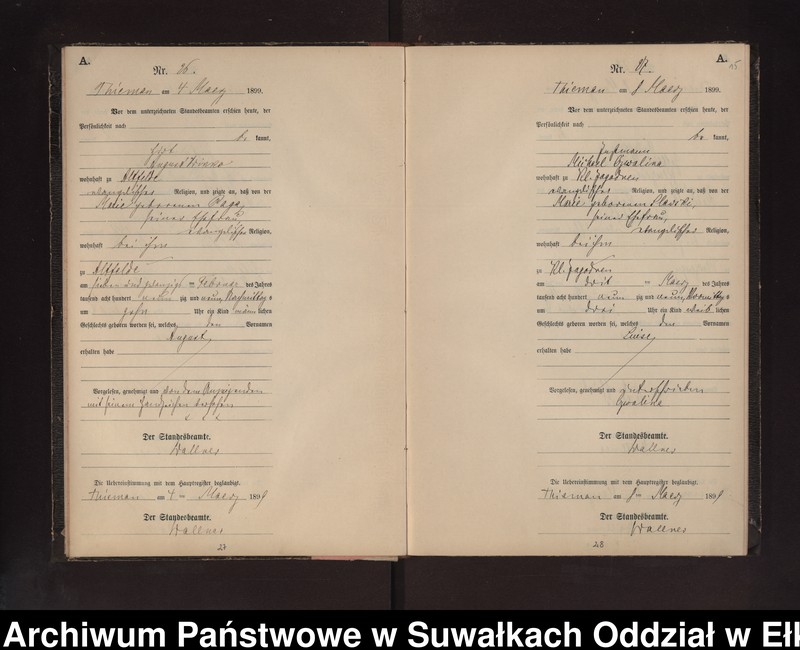 A.
Nr. 26.
Thiemau am 4 Maerz 1899.
Vor dem unterzeichneten Standesbeamten erschien heute, der
Persönlichkeit nach
be kannt,
August
wohnhaft zu Altfelde
evangelischer Religion, und zeigte an, daß von der
Marie geborenen
seiner Ehefrau,
evangelischer Religion,
wohnhaft bei ihm
zu Altfelde
am sieben und zwanzigsten Februar des Jahres
tausend acht hundert neun zig und neun Nachmittag s
um zehn Uhr ein Kind männ lichen
Geschlechts geboren worden sei, welches den Vornamen
August
erhalten habe
Vorgelesen, genehmigt und von dem Anzeigenden
mit seinem Handzeichen versehen
Der Standesbeamte.
Wallner
Die Uebereinstimmung mit dem Hauptregister beglaubigt.
Thiemau am 4 ten Maerz 1899
Der Standesbeamte.
Wallner
27
A.
Nr. 27.
Thiemau am 8 Maerz 1899.
Vor dem unterzeichneten Standesbeamten erschien heute, der
Persönlichkeit nach
be kannt,
Michael Gwallna
wohnhaft zu Kl. Jagodnen
evangelischer Religion, und zeigte an, daß von der
Marie geborenen
seiner Ehefrau,
evangelischer Religion,
wohnhaft bei ihm
zu Kl. Jagodnen
am Maerz des Jahres
tausend acht hundert neun zig und neun Vormittag s
um drei Uhr ein Kind weib lichen
Geschlechts geboren worden sei, welches den Vornamen
Luise
erhalten habe
Vorgelesen, genehmigt und unterschrieben
Gwallna
Der Standesbeamte.
Wallner
Die Uebereinstimmung mit dem Hauptregister beglaubigt.
Thiemau am 8 ten Maerz 1899
Der Standesbeamte.
Wallner
28
Archiwum Państwowe w Suwałkach Oddział w Ełk